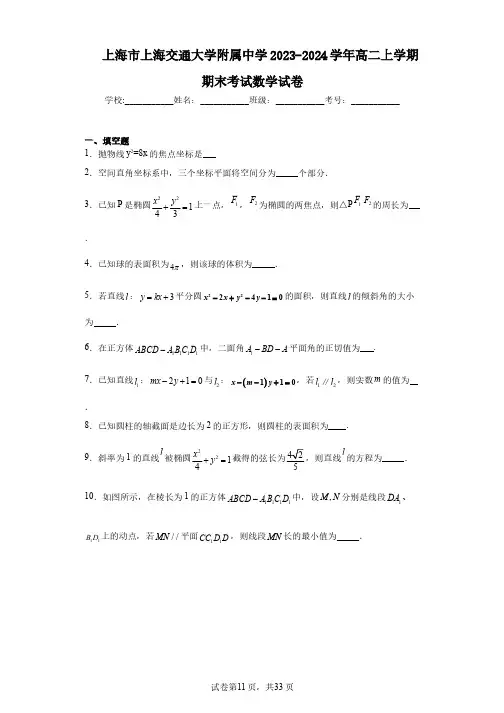 上海市上海交通大学附属中学2023-2024学年高二上学期
期末考试数学试卷
学校:___________姓名：___________班级：___________考号：___________
一、填空题
1．抛物线y²=8x的焦点坐标是___
2．空间直角坐标系中，三个坐标平面将空间分为_____个部分．
3．已知P是椭圆x²/4+y²/3=1上一点，F₁，F₂为椭圆的两焦点，则△PF₁F₂的周长为___
．
4．已知球的表面积为4π，则该球的体积为_____．
5．若直线l：y=kx+3平分圆x²−2x+y²−4y−1=0的面积，则直线l的倾斜角的大小
为_____．
6．在正方体ABCD−A₁B₁C₁D₁中，二面角A₁−BD−A平面角的正切值为___．
7．已知直线l₁：mx−2y+1=0与l₂：x−(m−1)y+1=0，若l₁∥l₂，则实数m的值为__
．
8．已知圆柱的轴截面是边长为2的正方形，则圆柱的表面积为____．
9．斜率为1的直线l被椭圆x²/4+y²=1截得的弦长为4√2/5，则直线l的方程为_____．
10．如图所示，在棱长为1的正方体ABCD−A₁B₁C₁D₁中，设M,N分别是线段DA₁、
B₁D₁上的动点，若MN//平面CC₁D₁D，则线段MN长的最小值为_____．
试卷第11页，共33页